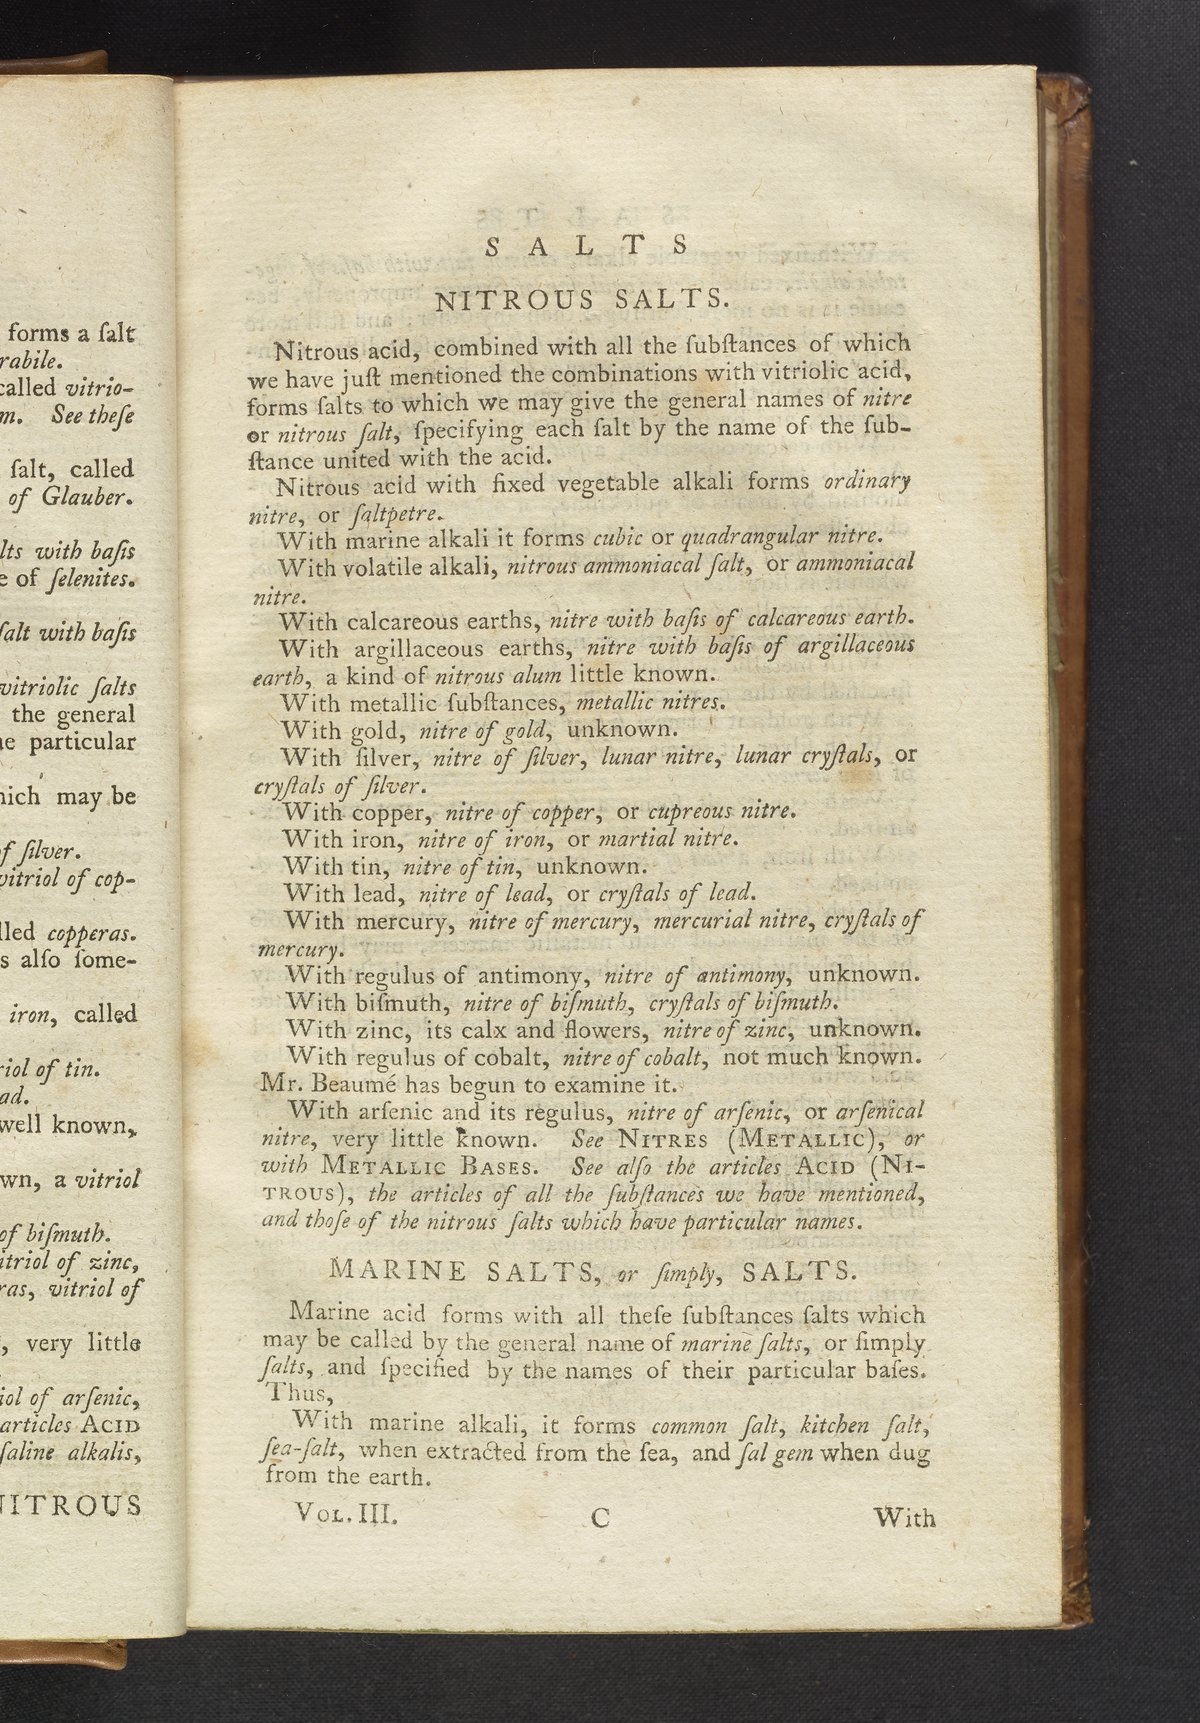 forms a ſalt
rabile.
called vitrio-
m. See theſe
ſalt, called
of Glauber.
lts with baſis
e of ſelenites.
ſalt with baſis
vitriolic ſalts
the general
he particular
hich may be
of ſilver.
vitriol of cop-
lled copperas.
s alſo ſome-
iron, called
riol of tin.
ad.
well known,
wn, a vitriol
of biſmuth.
itriol of zinc,
ras, vitriol of
, very little
iol of arſenic,
articles ACID
ſaline alkalis,
NITROUS
SALTS
NITROUS SALTS.
Nitrous acid, combined with all the ſubſtances of which
we have juſt mentioned the combinations with vitriolic acid,
forms ſalts to which we may give the general names of nitre
or nitrous ſalt, ſpecifying each ſalt by the name of the ſub-
ſtance united with the acid.
Nitrous acid with fixed vegetable alkali forms ordinary
nitre, or ſaltpetre.
With marine alkali it forms cubic or quadrangular nitre.
With volatile alkali, nitrous ammoniacal ſalt, or ammoniacal
nitre.
With calcareous earths, nitre with baſis of calcareous earth.
With argillaceous earths, nitre with baſis of argillaceous
earth, a kind of nitrous alum little known.
With metallic ſubſtances, metallic nitres.
With gold, nitre of gold, unknown.
With ſilver, nitre of ſilver, lunar nitre, lunar cryſtals, or
cryſtals of ſilver.
With copper, nitre of copper, or cupreous nitre.
With iron, nitre of iron, or martial nitre.
With tin, nitre of tin, unknown.
With lead, nitre of lead, or cryſtals of lead.
With mercury, nitre of mercury, mercurial nitre, cryſtals of
mercury.
With regulus of antimony, nitre of antimony, unknown.
With biſmuth, nitre of biſmuth, cryſtals of biſmuth.
With zinc, its calx and flowers, nitre of zinc, unknown.
With regulus of cobalt, nitre of cobalt, not much known.
Mr. Beaumé has begun to examine it.
With arſenic and its regulus, nitre of arſenic, or arſenical
nitre, very little known. See NITRES (METALLIC), or
with METALLIC BASES. See alſo the articles ACID (NI-
TROUS), the articles of all the ſubſtances we have mentioned,
and thoſe of the nitrous ſalts which have particular names.
MARINE SALTS, or ſimply, SALTS.
Marine acid forms with all theſe ſubſtances ſalts which
may be called by the general name of marine ſalts, or ſimply
ſalts, and ſpecified by the names of their particular baſes.
Thus,
With marine alkali, it forms common ſalt, kitchen ſalt,
ſea-ſalt, when extracted from the ſea, and ſal gem when dug
from the earth.
VOL. III. C With